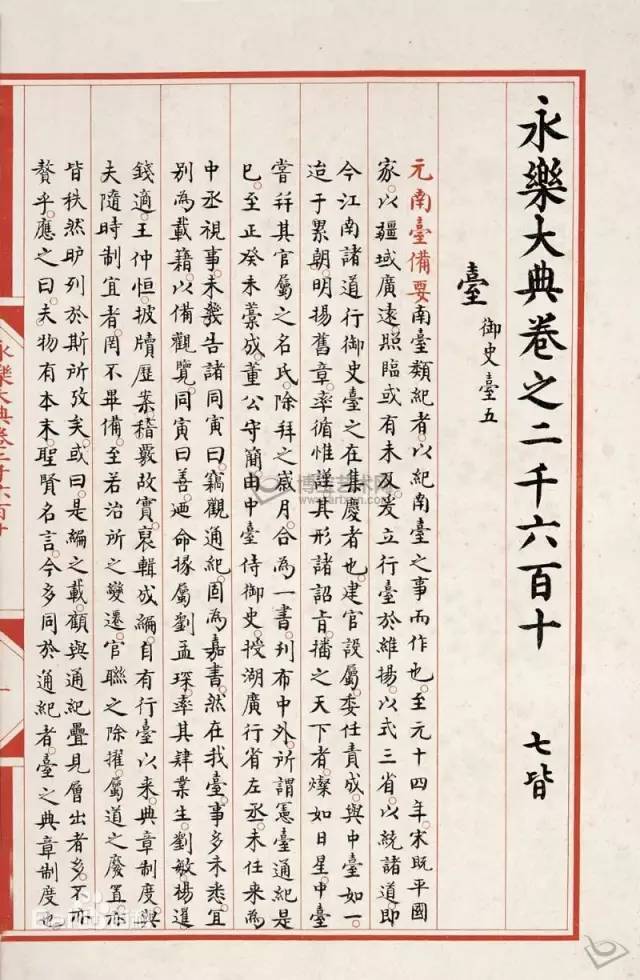 永樂大典卷之二千六百十 七皆
臺 御史臺五
元南臺備要南臺類紀者。以紀南臺之事而作也。至元十四年。宋既平國
家。以疆域廣遠。照臨或有未及。爰立行臺於維揚。以式三省。以統諸道。即
今江南諸道行御史臺之在集慶者也。建官設屬。委任責成。與中臺如一。
迨于累朝。明揚舊章。率循惟謹。其形諸詔旨。播之天下者。燦如日星。中臺
嘗拜其官屬之名氏。除拜之歲月。合為一書。列布中外。所謂憲臺通紀是
已。至正癸未藁成。董公守簡。由中臺侍御史。授湖廣行省左丞。未任来為
中丞視事。未幾告諸同寅曰。竊觀通紀。固為嘉書。然在我臺。事多未悉。宜
別為載籍。以備觀覽。同寅曰善。迺命掾屬劉孟琛。率其肄業生劉敏楊進
錢適。王仲恒。披牘歷案。稽覈故實。裒輯成編。自有行臺以来。典章制度。與
夫隨時制宜者。罔不畢備。至若治所之變遷。官聯之除擢。屬道之廢置。亦
皆秩然胪列於斯所攷矣。或曰是編之載。顧與通紀疊見層出者多。不亦
贅乎。應之曰。夫物有本末。聖賢名言。今多同於通紀者。臺之典章制度也
永樂大典卷二千六百十
一
博宝艺术网